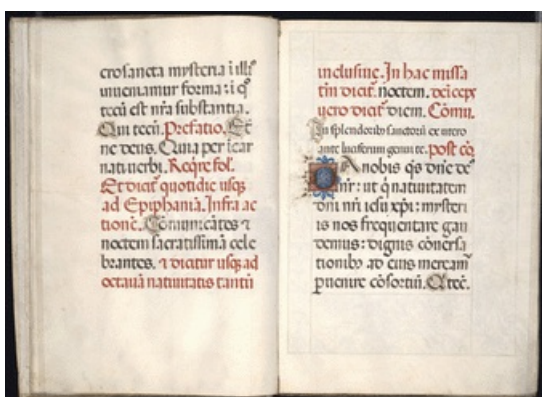 crosancta mysteria ī illiꝰ
inueniamur forma: ī q̊
tecū est nr̄a substantia.
Qui tecū. Prefatio. Et
ne deus. Quia per icar
nati uerbi. Reqre fol.
Et dicit̄ quotidie usq̄
ad Epiphaniā. Infra ac
tionē. Cōmunicātes ⁊
noctem sacratissimā cele
brantes. ⁊ dicitur usq̄ ad
octauā natiuitatis tantū
inclusiue. In hac missa
tm̄ dicit̄ noctem. deīceps
uero dicit̄ diem. Cōmu.
In splendorib̄ sanctorū ex utero
ante luciferum genui te. post cō.
Da nobis q̄s dn̄e de
nr̄: ut q̄ natiuitatem
dn̄i nr̄i iesu xp̄i: mysterı
is nos frequentare gau
demus: dignis cōuersa
tionibꝫ ad eius meream̄
puenire cōsortiū. Q tec̄.